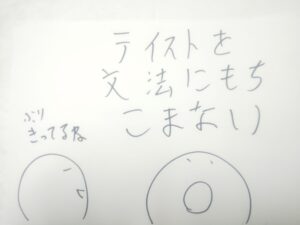 テイストを
文法にもち
こまない
ぶり
きってるね